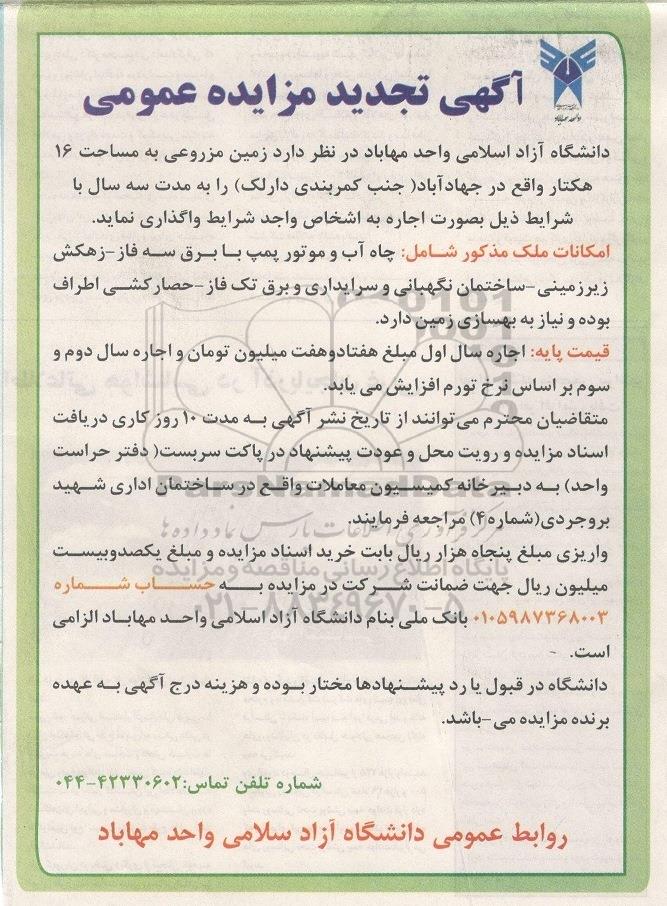 آگهی تجدید مزایده عمومی
دانشگاه آزاد اسلامی واحد مهاباد در نظر دارد زمین مزروعی به مساحت ۱۶
هکتار واقع در جهادآباد( جنب کمربندی دارلک) را به مدت سه سال با
شرایط ذیل بصورت اجاره به اشخاص واجد شرایط واگذاری نماید.
امکانات ملک مذکور شامل: چاه آب و موتور پمپ با برق سه فاز-زهکش
زیرزمینی-ساختمان نگهبانی و سرایداری و برق تک فاز-حصارکشی اطراف
بوده و نیاز به بهسازی زمین دارد.
قیمت پایه: اجاره سال اول مبلغ هفتادوهفت میلیون تومان و اجاره سال دوم و
سوم بر اساس نرخ تورم افزایش می یابد.
متقاضیان محترم می‌توانند از تاریخ نشر آگهی به مدت ۱۰ روز کاری دریافت
اسناد مزایده و رویت محل و عودت پیشنهاد در پاکت سربست( دفتر حراست
واحد) به دبیرخانه کمیسیون معاملات واقع در ساختمان اداری شهید
بروجردی(شماره۴) مراجعه فرمایند.
واریزی مبلغ پنجاه هزار ریال بابت خرید اسناد مزایده و مبلغ یکصدوبیست
میلیون ریال جهت ضمانت شرکت در مزایده به حساب شماره
۰۱۰۵۹۸۷۳۶۸۰۰۳ بانک ملی بنام دانشگاه آزاد اسلامی واحد مهاباد الزامی
است.
دانشگاه در قبول یا رد پیشنهادها مختار بوده و هزینه درج آگهی به عهده
برنده مزایده می-باشد.
شماره تلفن تماس:۴۲۳۳۰۶۰۲-۰۴۴
روابط عمومی دانشگاه آزاد سلامی واحد مهاباد
ParsNamadData
مرکز فرآوری اطلاعات پارس نماد داده‌ها
پایگاه اطلاع رسانی مناقصه و مزایده
۰۲۱-۸۸۳۴۹۶۷۰-۵